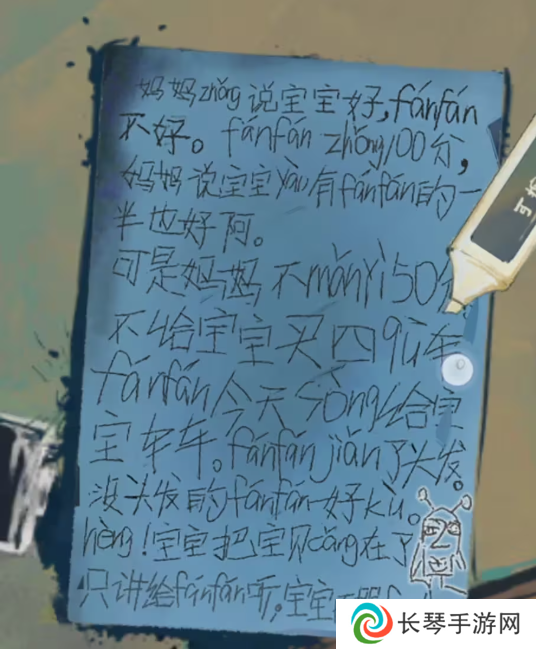 妈妈zhǎng说宝宝好,fánfán
不好。fánfán zhǒng100分,
妈妈说宝宝yào有fánfán的一
半也好阿。
可是妈妈不mǎnyì50分
不给宝宝买四qū车
fánfán今天sòng给宝
宝车车。fánfán jiǎn了头发。
没头发的fánfán好kù。
hèng!宝宝把宝贝cáng在了
只讲给fánfán听,宝宝
长琴手游网